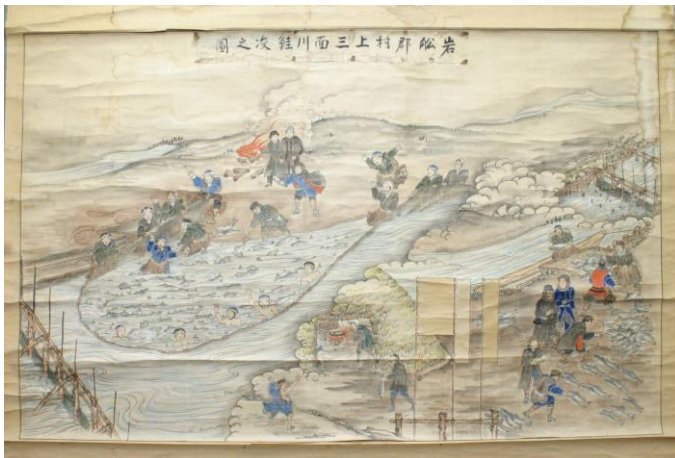 岩舩郡村上三面川鮭之圖